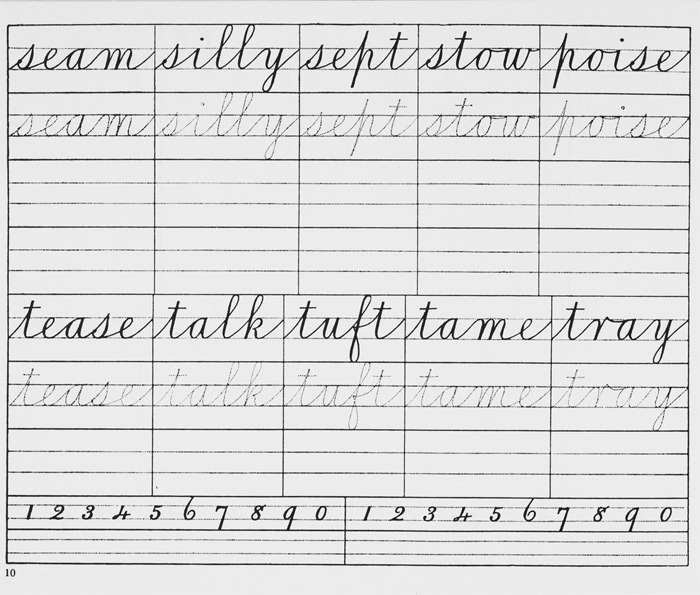 seam silly sept stow poise
seam silly sept stow poise
tease talk tuft tame tray
tease talk tuft tame tray
1 2 3 4 5 6 7 8 9 0 1 2 3 4 5 6 7 8 9 0
10